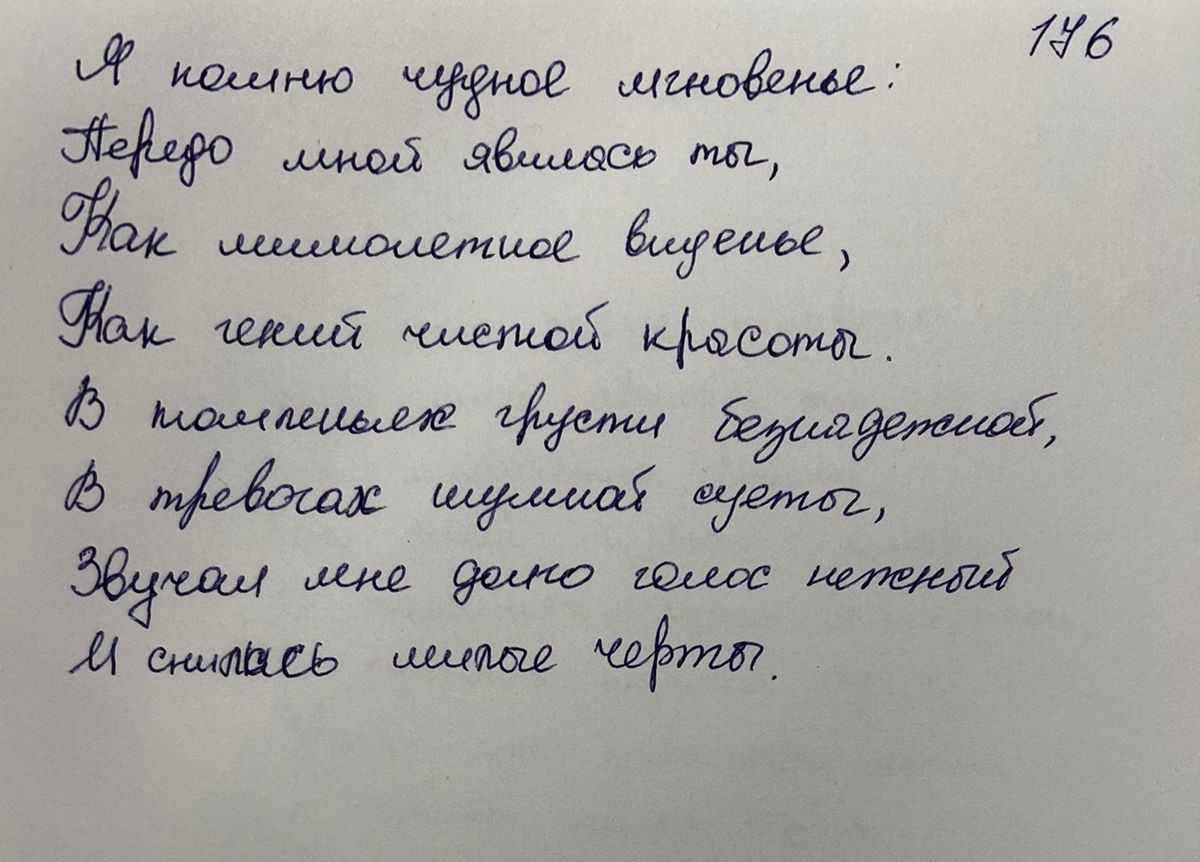 176
Я помню чудное мгновенье:
Передо мной явилась ты,
Как мимолетное виденье,
Как гений чистой красоты.
В томленьях грусти безнадежной,
В тревогах шумной суеты,
Звучал мне долго голос нежный
И снились милые черты.